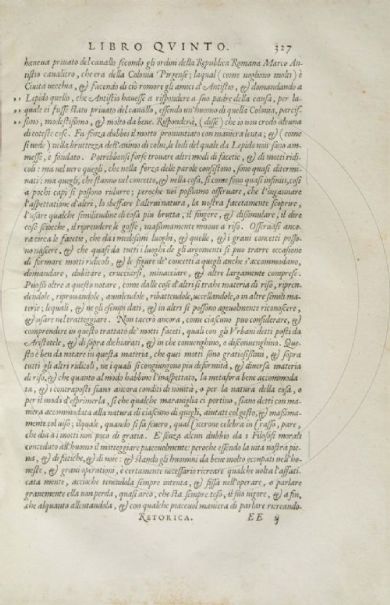 LIBRO QVINTO. 327
haueua priuato del cauallo secondo gli ordini della Republica Romana Marco An-
tistio caualiero, che era della Colonia Pirgense; laqual (come vogliono molti) è
Ciuità vecchia, & facendo di ciò romore gli amici d'Antistio, & domandando a
Lepido quello, che Antistio hauesse a rispondere a suo padre della causa, per la-
quale ei fusse stato priuato del cauallo, essendo vn'huomo di quella Colonia, parcis-
simo, modestissimo, & molto da bene. Responderà, (disse) che io non credo alcuna
di coteste cose. Fu senza dubbio il motto pronuntiato con maniera leuta; & (come
si vede) nella bruttezza dell'animo di colui, le lodi del quale da Lepido non sono am-
messe, è fondato. Potrebbonsi forse trouare altri modi di facetie, & di motti ridi-
coli: ma nel vero quegli, che nella forza delle parole consistono, sono quasi determi-
nati: ma quegli, che stanno nel concetto, & nella cosa, sì come sono quasi infiniti, così
a pochi capi si possono ridurre; peroche noi possiamo osseruare, che l'ingannare
l'aspettatione d'altri, lo sbeffare l'altrui natura, la nostra facetamente scoprire,
l'vsare qualche similitudine di cosa più brutta, il fingere, & dissimulare, il dire
cose sciocche, il riprendere le goffe, massimamente muoue a riso. Osseruasi anco-
ra circa le facetie, che da i medesimi luoghi, & quelle, & i graui concetti posso-
no nascere, & che quasi da tutti i luoghi de gli argomenti si può trarre occasione
di formare motti ridicoli, & le figure de' concetti a quegli anche s'accommodano,
domandare, dubitare, crucciarsi, minacciare, & altre largamente comprese.
Puossi oltre a questo notare, come dalle cose d'altri si trahe materia di riso, ripren-
dendole, riprouandole, auuilendole, ribattendole, vccellandole, o in altre simili ma-
niere; lequali, & ne gli esempi dati, & in altri si possono ageuolmente riconoscere,
& vsare nel tratteggiare. Non tacerò ancora, come ciascuno può considerare, &
comprendere in questo trattato de' motti faceti, quali con gli Vrbani detti posti da
Aristotele, & di sopra dichiarati, & in che conuenghino, & disconuenghino. Que-
sto è ben da notare in questa materia, che quei motti sono gratiosissimi, & sopra
tutti gli altri ridicoli, ne i quali si congiungono più deformità, & diuersa materia
di riso, & che quanto al modo habbino l'inaspettato, la metafora bene accommoda-
ta, & i contraposti: siano ancora conditi di nouità, o per la natura della cosa, o
per il modo d'esprimerla, sì che qualche marauiglia ci portino, siano detti con ma-
niera accommodata alla natura di ciascuno di quegli, aiutati col gesto, & massima-
mente col viso; ilquale, quando si fa seuero, qual Cicerone celebra in Crasso, pare,
che dia a i motti non poco di gratia. E senza alcun dubbio da i Filosofi morali
conceduto all'huomo il motteggiare piaceuolmente: peroche essendo la vita nostra pie-
na, & di fatiche, & di noie: & stando gli huomini da bene molto occupati nell'ho-
neste, & graui operationi, è certamente necessario ricreare qualche volta l'affati-
cata mente, accioche tenendola sempre intenta, & fissa nell'operare, o parlare
grauemente ella non perda, quasi arco, che stà sempre teso, il suo vigore, & a fin,
che alquanto allentandola, & con qualche piaceuol maniera di parlare ricreando-
RETORICA. EE ij